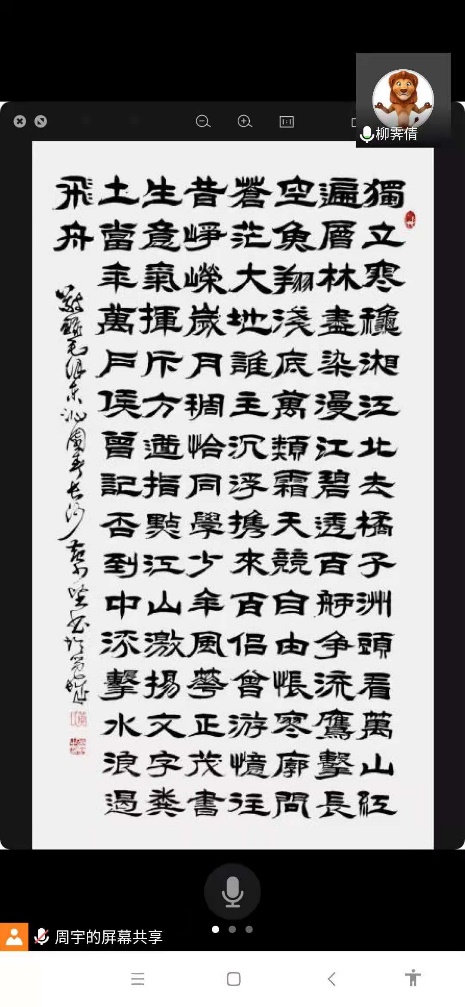 柳霁倩
獨立寒穐湘江北去橘子洲頭看萬山紅
遍層林盡染漫江碧透百舸争流鷹擊長
空魚翔淺底萬類霜天競自由悵寥廓問
蒼茫大地誰主沉浮携來百侣曾游憶往
昔崢嶸歲月稠恰同學少年風華正茂書
生意氣揮斥方遒指點江山激揚文字糞
土當年萬户侯曾記否到中流擊水浪遏
飛舟
毛澤東沁園春長沙
周宇的屏幕共享